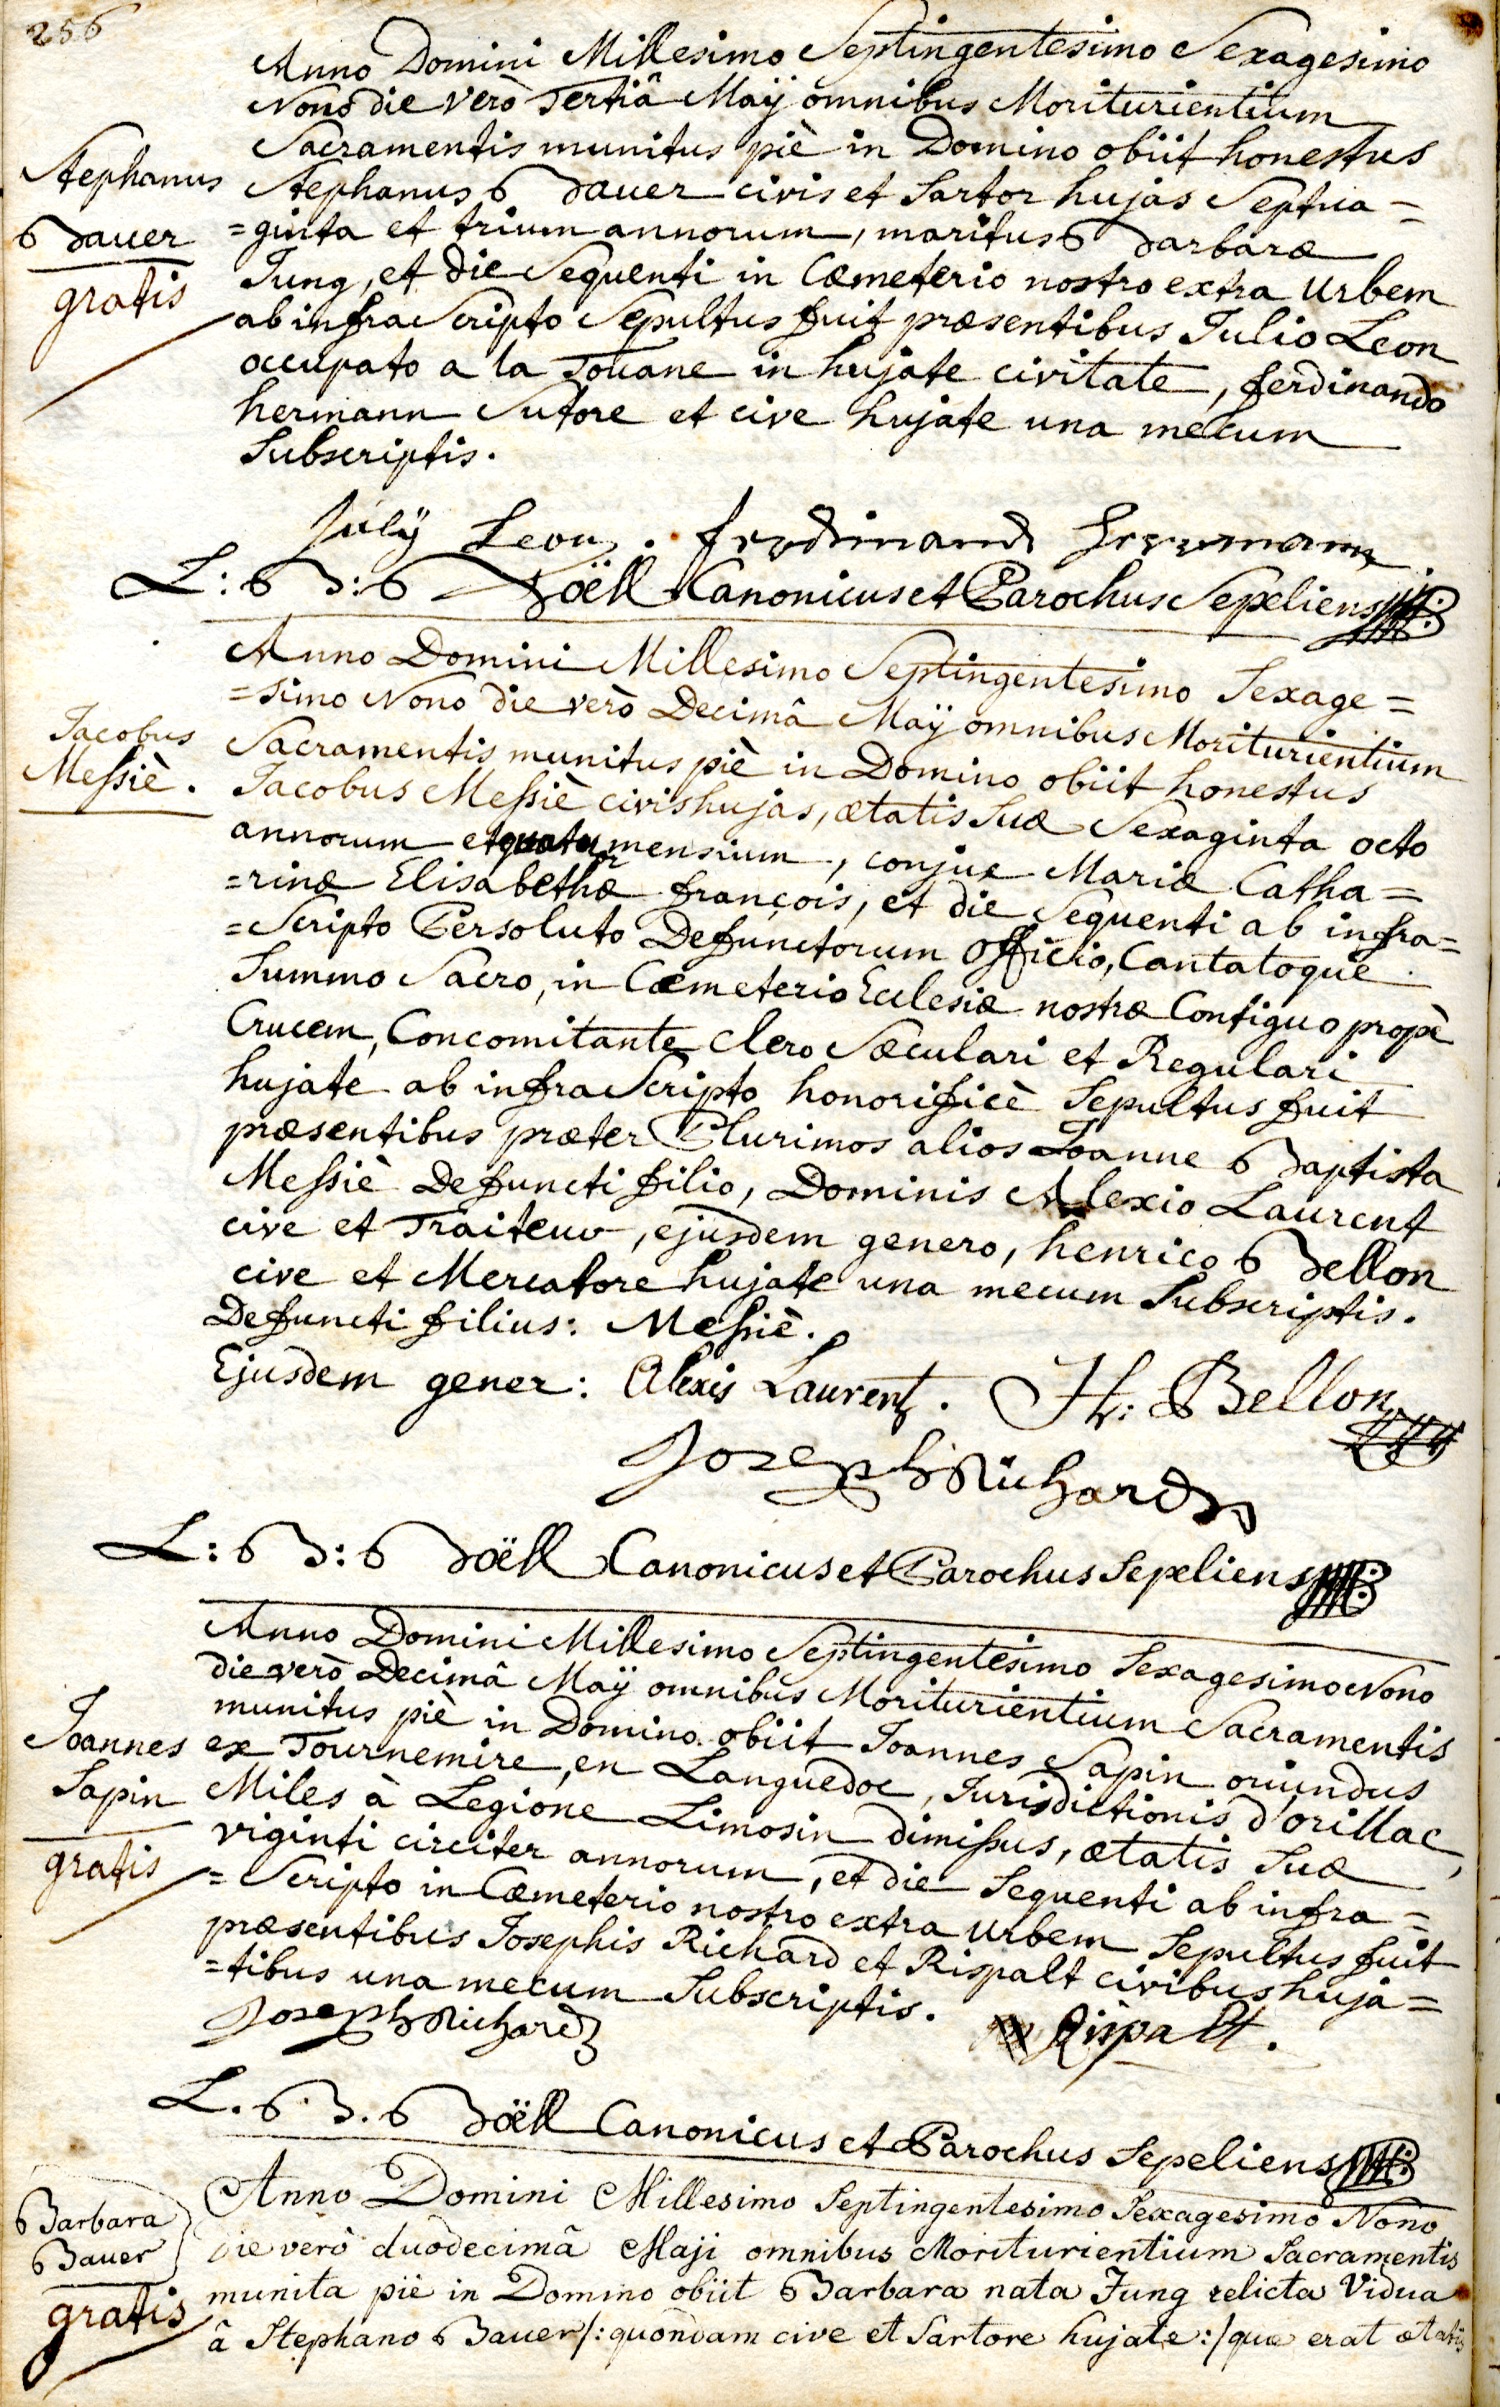 256
Anno Domini Millesimo Septingentesimo Sexagesimo
Nono die verò Tertiâ Maÿ omnibus Moriturientium
Sacramentis munitus piè in Domino obiit honestus
Stephanus
Bauer
gratis
Stephanus Bauer civis et Sartor hujas Septua=
=ginta et trium annorum, maritus Barbaræ
Jung, et die Sequenti in Cœmeterio nostro extra Urbem
ab infra Scripto Sepultus fuit præsentibus Julio Leon
occupato a la Douane in hujate civitate, ferdinando
hermann Sutore et cive hujate una mecum
Subscriptis.
Julÿ Leon. ferdinand herrmann
L: B: Boëll Canonicus et Parochus Sepeliens
Anno Domini Millesimo Septingentesimo Sexage=
=simo Nono die verò Decimâ Maÿ omnibus Moriturientium
Jacobus
Messiè.
Sacramentis munitus piè in Domino obiit honestus
Jacobus Messiè civis hujas, ætatis Suæ Sexaginta octo
annorum et quatuor mensium, conjux Mariæ Catha=
=rinæ Elisabethæ françois, et die Sequenti ab infra=
=Scripto Persoluto Defunctorum Officio, Cantatoque
Summo Sacro, in Cœmeterio Ecclesiæ nostræ Contiguo propè
Crucem, Concomitante Clero Sæculari et Regulari
hujate ab infra Scripto honorificè Sepultus fuit
præsentibus præter Plurimos alios Joanne Baptista
Messiè Defuncti filio, Dominis Alexio Laurent
cive et Traiteur, ejusdem genero, henrico Bellon
cive et Mercatore hujate una mecum Subscriptis.
Defuncti filius: Messiè.
Ejusdem gener: Alexis Laurent. H: Bellon
Joseph Richard
L: B: Boëll Canonicus et Parochus Sepeliens
Anno Domini Millesimo Septingentesimo Sexagesimo Nono
die verò Decimâ Maÿ omnibus Moriturientium Sacramentis
munitus piè in Domino obiit Joannes Sapin oriundus
Joannes
Sapin
gratis
ex Tournemire, en Languedoc, Jurisdictionis d'orillac,
Miles à Legione Limosin dimissus, ætatis Suæ
viginti circiter annorum, et die Sequenti ab infra=
=Scripto in Cœmeterio nostro extra Urbem Sepultus fuit
præsentibus Josephis Richard et Rispalt civibus huja=
=tibus una mecum Subscriptis.
Joseph Richard Rispalt.
L. B. Boëll Canonicus et Parochus Sepeliens
Barbara
Bauer
gratis
Anno Domini Millesimo Septingentesimo Sexagesimo Nono
Die verò duodecimâ Maji omnibus Moriturientium Sacramentis
munita piè in Domino obiit Barbara nata Jung relicta Vidua
â Stephano Bauer /: quondam cive et Sartore hujate :/ quæ erat ætatis